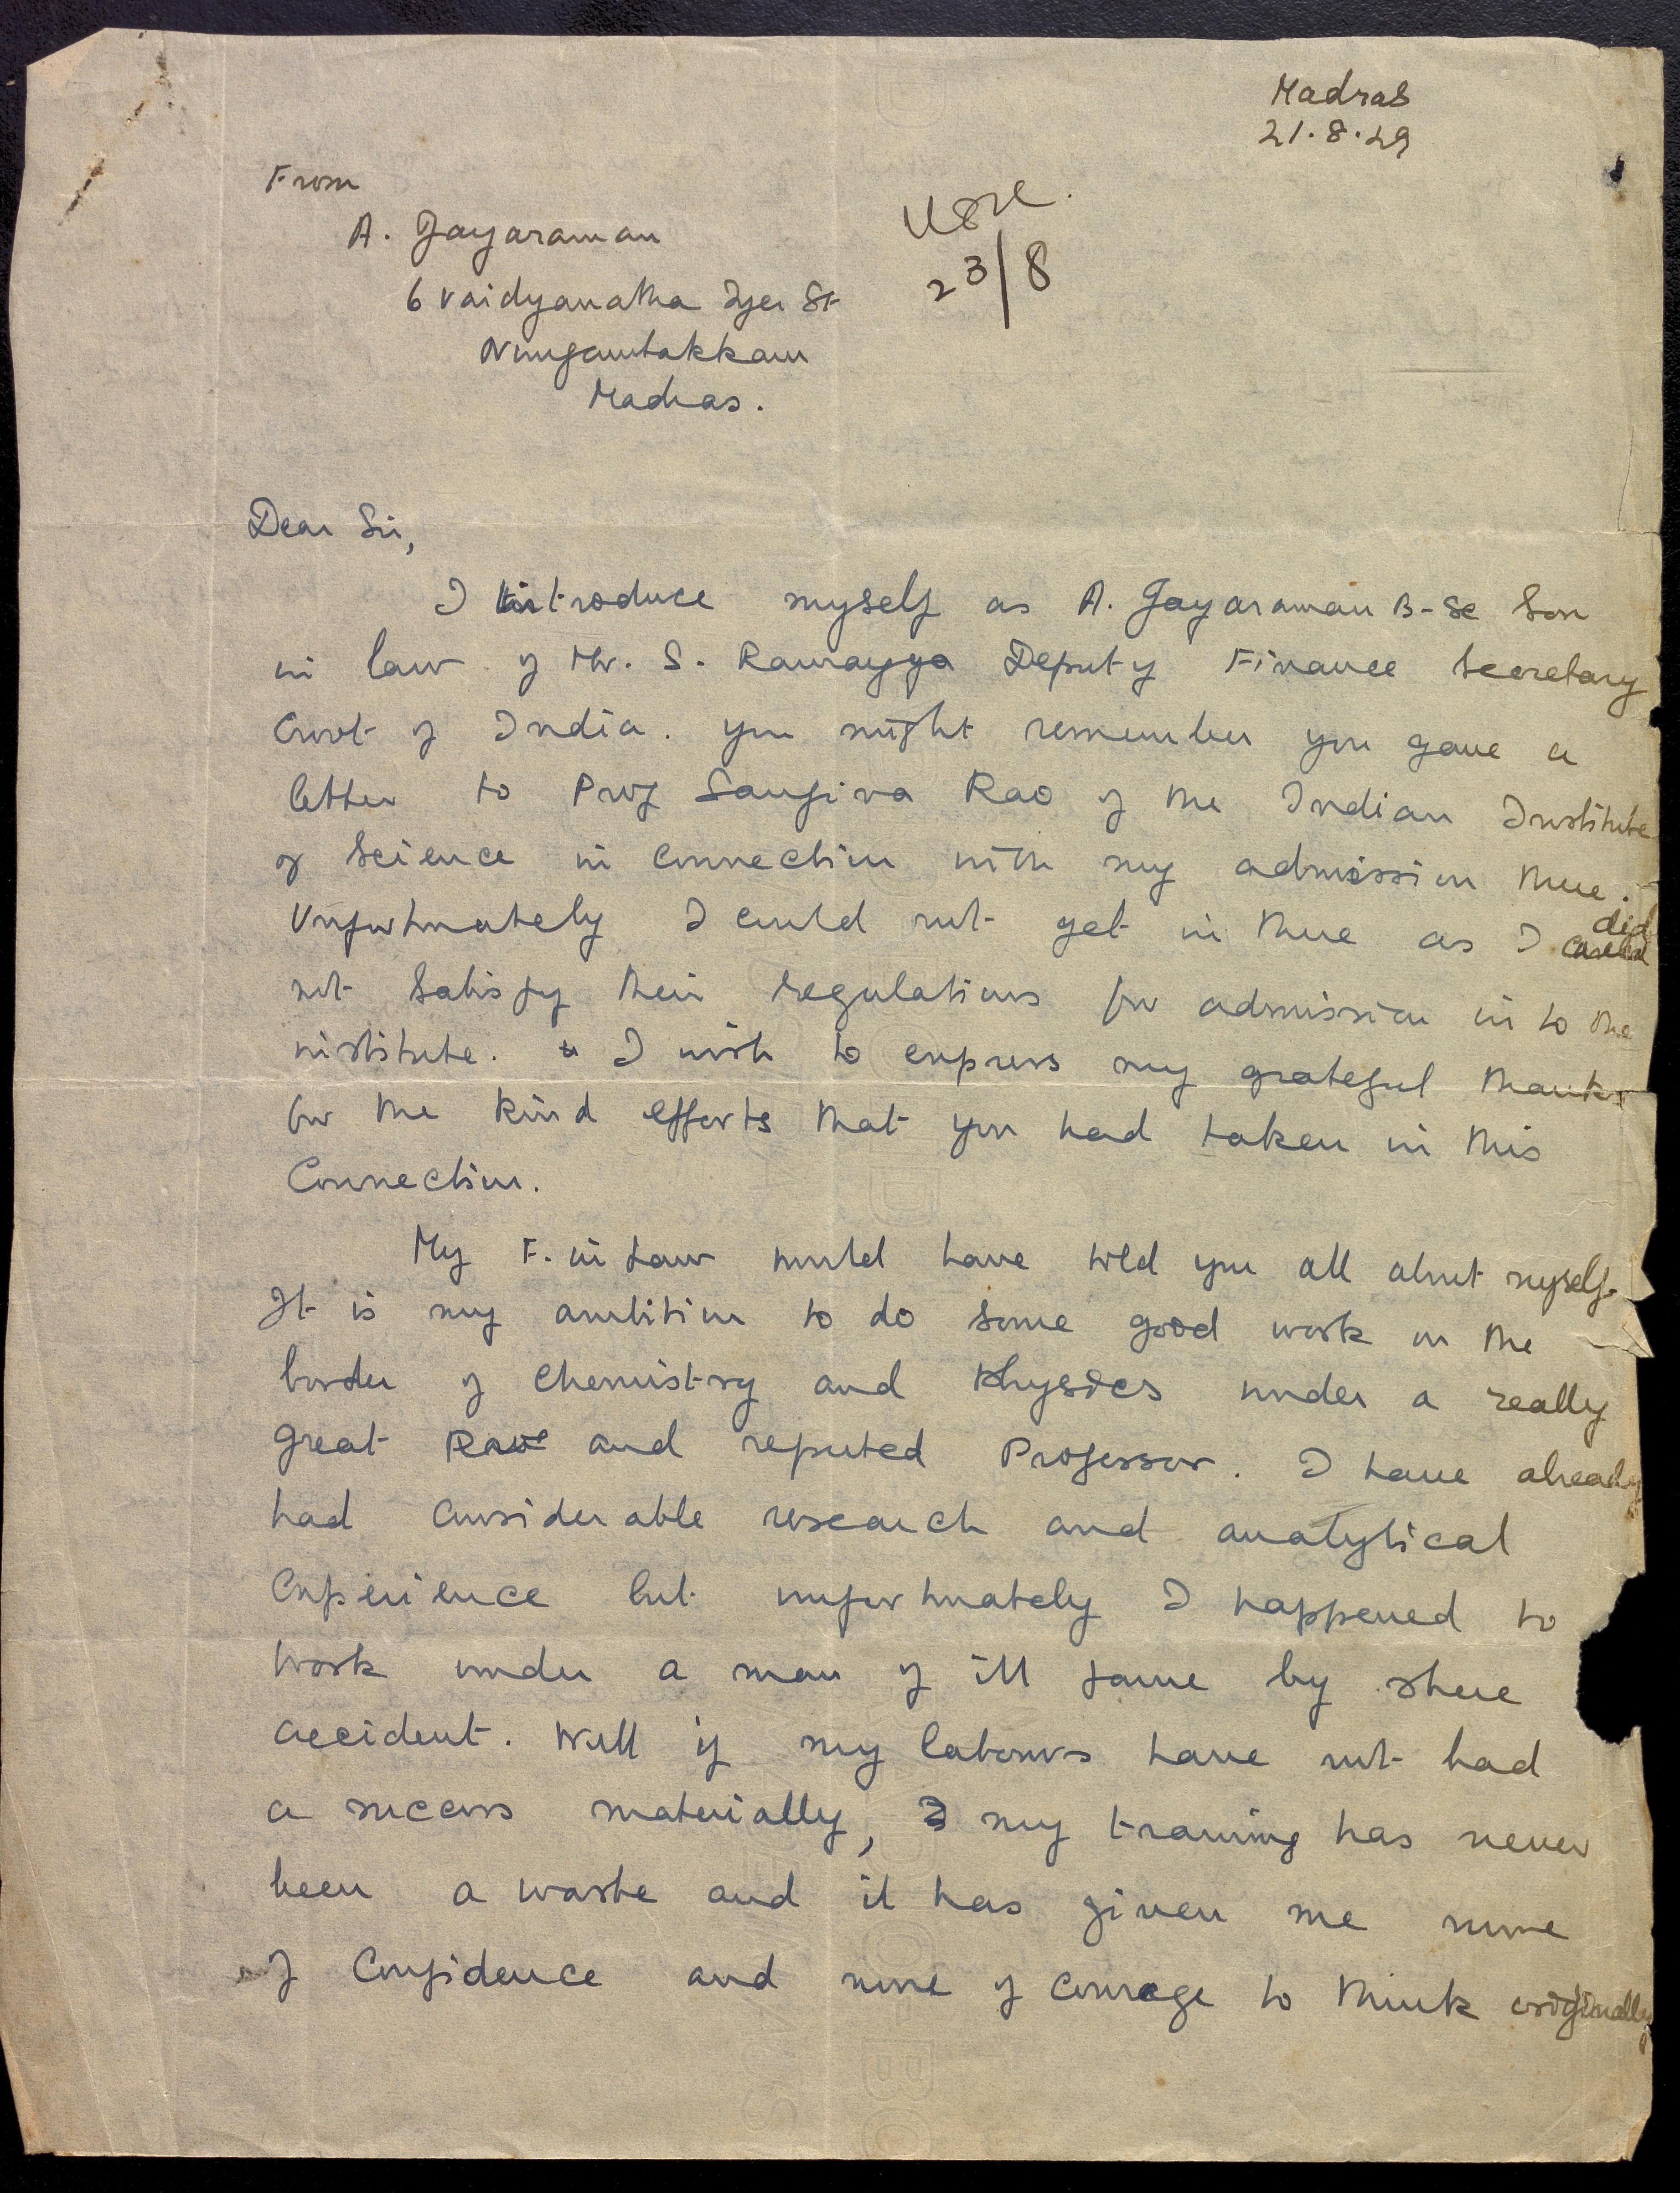 Madras
21.8.29
From
A. Jayaraman
6 Vaidyanatha Iyer St
Nungambakkam
Madras.
23/8
Dear Sir,
I introduce myself as A. Jayaraman B-Sc Son
in law of Mr. S. Ramayya Deputy Finance Secretary
Govt of India. You might remember you gave a
letter to Prof Sanjiva Rao of the Indian Institute
of Science in connection with my admission there.
Unfortunately I could not get in there as I did
not satisfy their regulations for admission in to the
institute. I wish to express my grateful thanks
for the kind efforts that you had taken in this
Connection.
My F. in Law would have told you all about myself.
It is my ambition to do some good work on the
border of Chemistry and Physics under a really
great and reputed Professor. I have already
had considerable research and analytical
experience but unfortunately I happened to
work under a man of ill fame by shere
accident. Well if my labours have not had
a success materially, my training has never
been a waste and it has given me more
of Confidence and more of courage to think originally